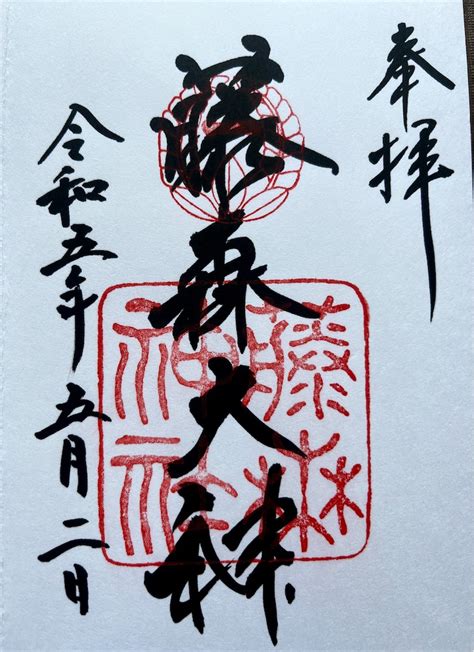 奉拝
藤森大神
藤森
神社
令和五年 五月二日